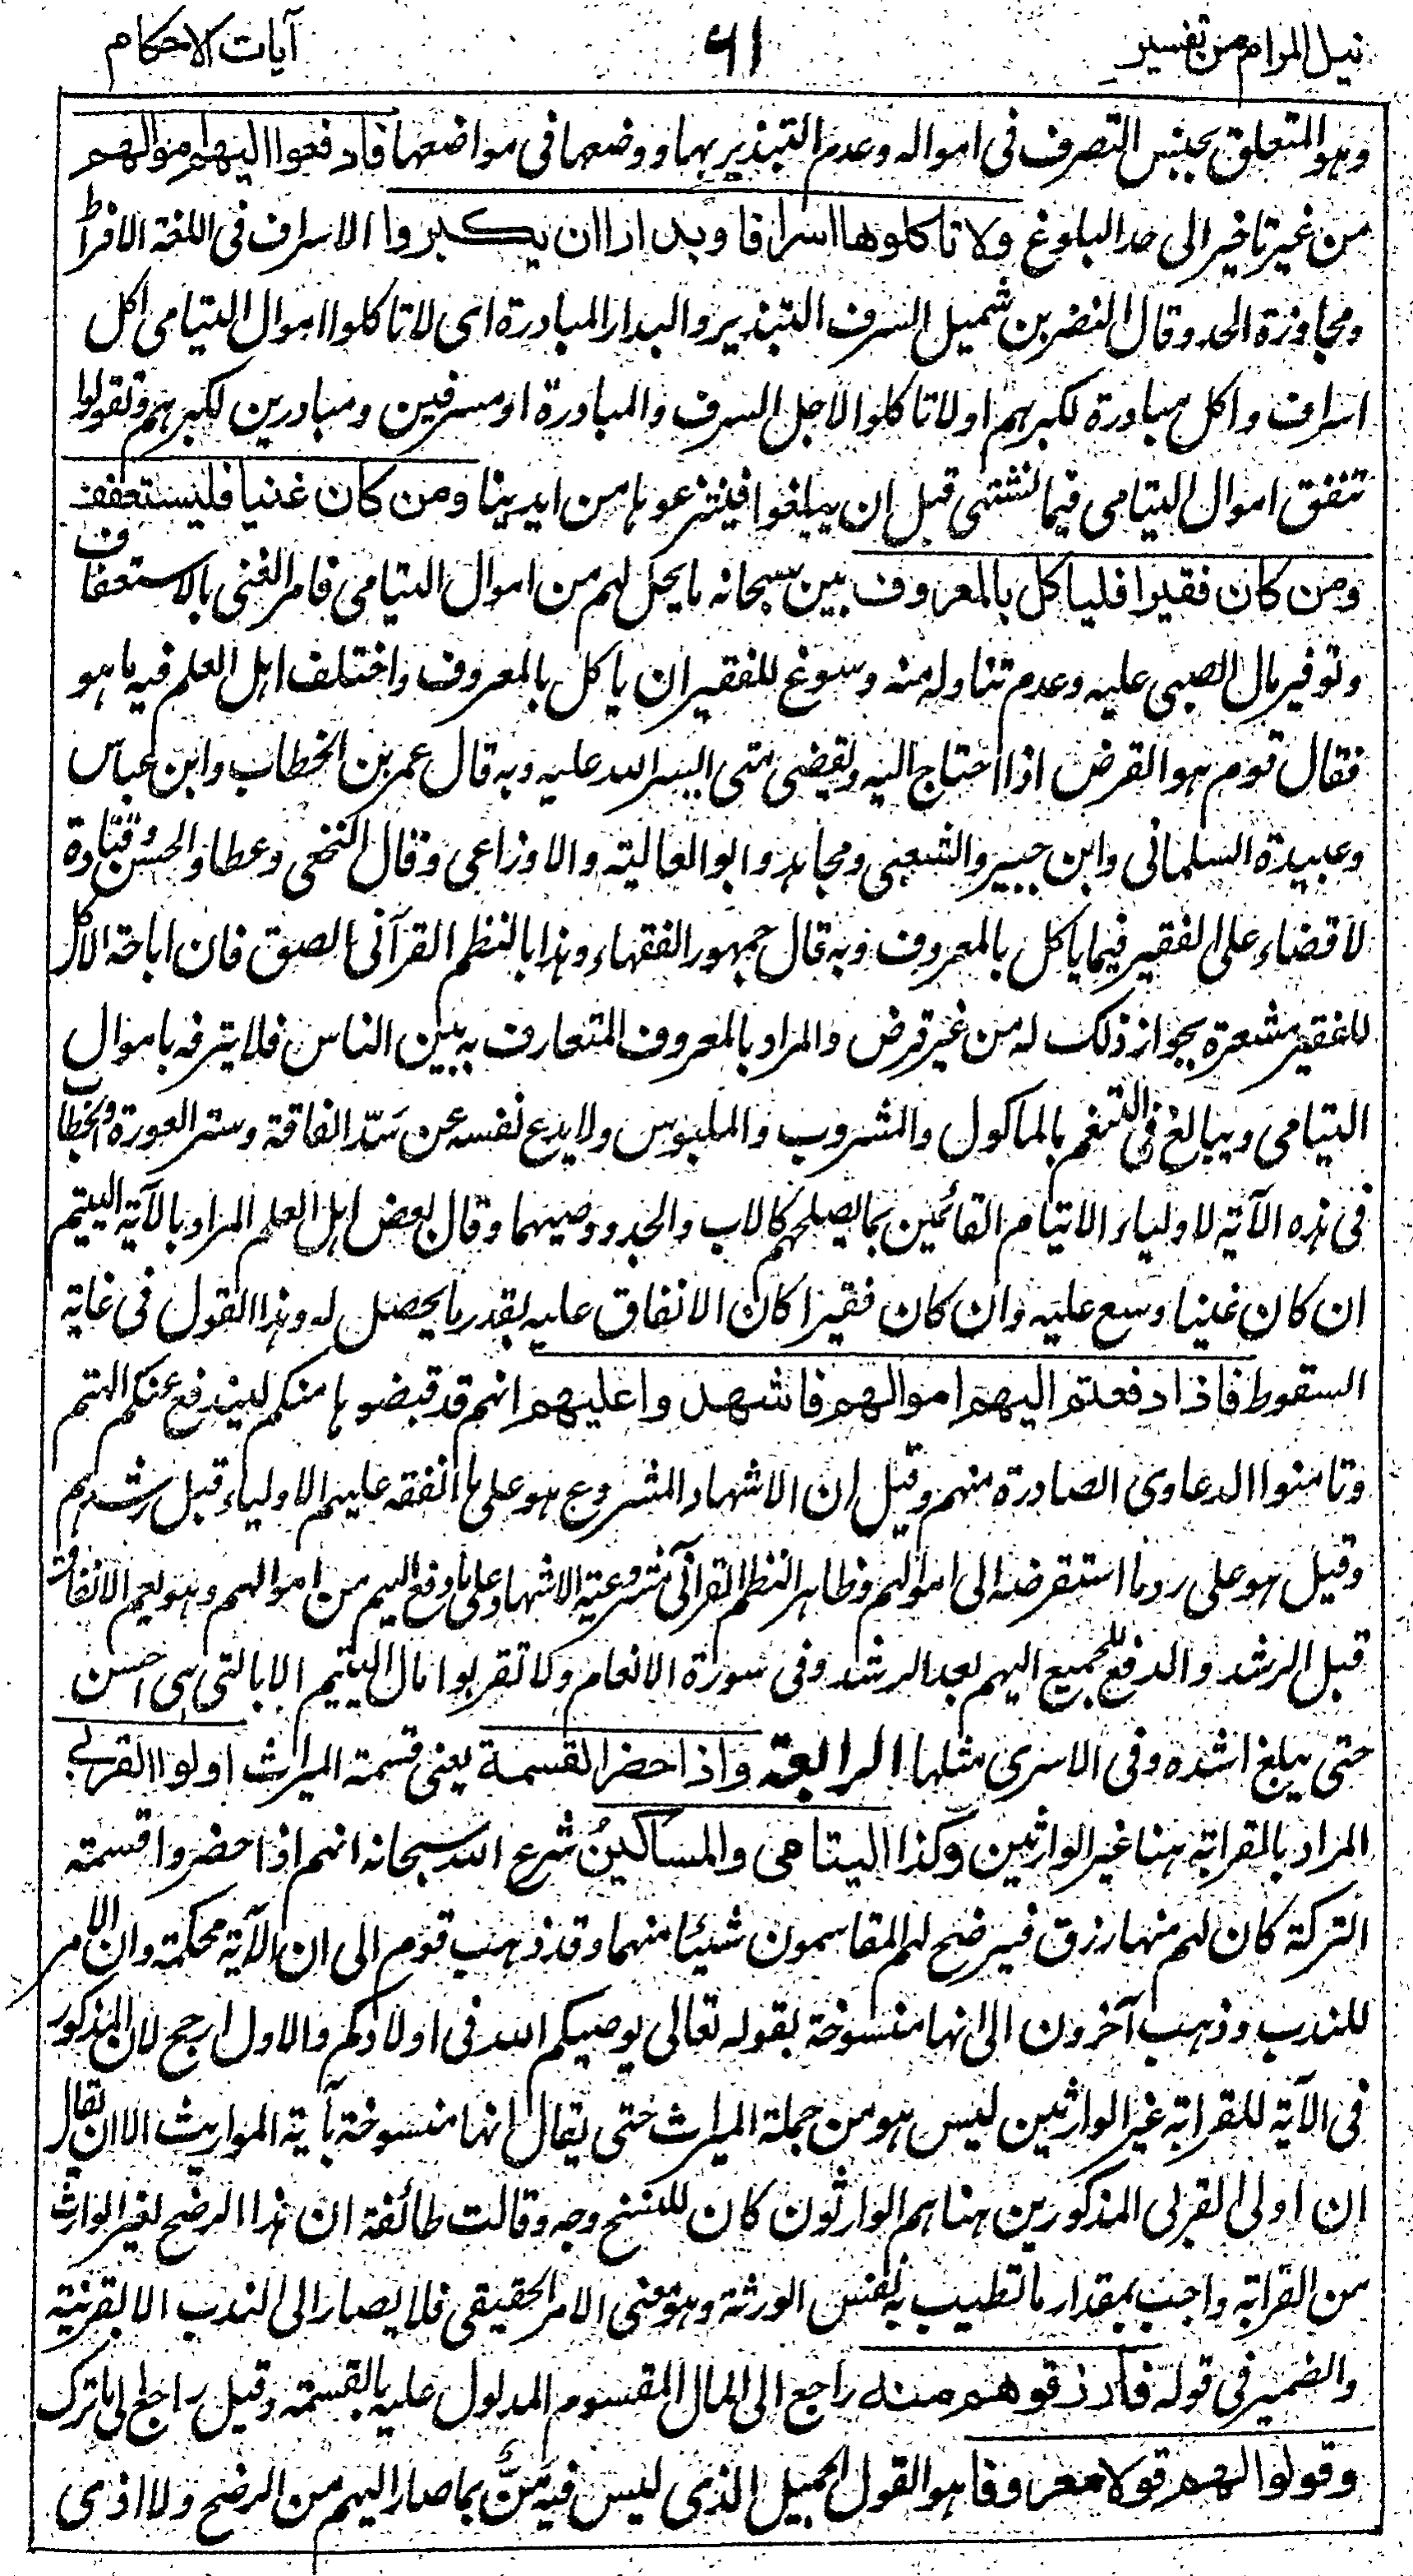 نيل المرام من تفسير ٦١ آيات الاحكام
وهو المتعلق بحسن التصرف فى امواله وعدم التبذير بها ووضعها فى مواضعها فادفعوا اليهم اموالهم
من غير تاخير الى حد البلوغ ولا تاكلوها اسرافا وبدارا ان يكبروا الاسراف فى اللغة الافراط
ومجاوزة الحد وقال النضر بن شميل السرف التبذير والبدار المبادرة اى لا تاكلوا اموال اليتامى اكل
اسراف واكل مبادرة لكبرهم او لا تاكلوا لاجل السرف والمبادرة او مسرفين ومبادرين لكبرهم وتقولوا
تنفق اموال اليتامى فيما نشتهى قبل ان يبلغوا فينتزعوها من ايدينا ومن كان غنيا فليستعفف
ومن كان فقيرا فلياكل بالمعروف بين سبحانه ما يحل لهم من اموال اليتامى فامر الغنى بالاستعفاف
وتوفير مال الصبى عليه وعدم تناوله منه وسوغ للفقير ان ياكل بالمعروف واختلف اهل العلم فيه ما هو
فقال قوم هو القرض اذا احتاج اليه ويقضى متى ايسر الله عليه وبه قال عمر بن الخطاب وابن عباس
وعبيدة السلمانى وابن جبير والشعبى ومجاهد وابو العالية والاوزاعى وقال النخعى وعطا والحسن وقتادة
لا قضاء على الفقير فيما ياكل بالمعروف وبه قال جمهور الفقهاء وهذا بالنظم القرآنى الصق فان اباحة الاكل
للفقير مشعرة بجواز ذلك له من غير قرض والمراد بالمعروف المتعارف به بين الناس فلا يترفه باموال
اليتامى ويبالغ فى التنعم بالماكول والمشروب والملبوس ولا يدع نفسه عن سَدّ الفاقة وستر العورة والخطاب
فى هذه الآية لاولياء الايتام القائمين بما يصلحهم كالاب والجد ووصيهما وقال بعض اهل العلم المراد بالآية اليتيم
ان كان غنيا وسع عليه وان كان فقيرا كان الانفاق عليه بقدر ما يحصل له وهذا القول فى غاية
السقوط فاذا دفعتم اليهم اموالهم فاشهدوا عليهم انهم قد قبضوها منكم ليندفع عنكم التهم
وتامنوا الدعاوى الصادرة منهم وقيل ان الاشهاد المشروع هو على ما انفقه عليهم الاولياء قبل رشدهم
وقيل هو على رد ما استقرضه الى اموالهم وظاهر النظم القرآنى مشروعية الاشهاد على ما دفع اليهم من اموالهم وهو يعم الانفاق
قبل الرشد والدفع للجميع اليهم بعد الرشد وفى سورة الانعام ولا تقربوا مال اليتيم الا بالتى هى احسن
حتى يبلغ اشده وفى الاسرى مثلها الرابعة واذا حضر القسمة يعنى قسمة الميراث اولوا القربى
المراد بالقرابة هنا غير الوارثين وكذا اليتامى والمساكينُ شرع الله سبحانه انهم اذا حضروا قسمة
التركة كان لهم منها رزق فيرضخ لهم المقاسمون شيئا منها وقد ذهب قوم الى ان الآية محكمة وان الامر
للندب وذهب آخرون الى انها منسوخة بقوله تعالى يوصيكم الله فى اولادكم والاول ارجح لان المذكور
فى الآية للقرابة غير الوارثين ليس هو من جملة الميراث حتى يقال انها منسوخة بآية المواريث الا ان يقال
ان اولى القربى المذكورين هنا هم الوارثون كان للنسخ وجه وقالت طائفة ان هذا الرضخ لغير الوارث
من القرابة واجب بمقدار ما تطيب به انفس الورثة وهو معنى الامر الحقيقى فلا يصار الى الندب الا بقرينة
والضمير فى قوله فارزقوهم منه راجع الى المال المقسوم المدلول عليه بالقسمة وقيل راجع الى ما ترك
وقولوا لهم قولا معروفا هو القول الجميل الذى ليس فيه مَنٌّ بما صار اليهم من الرضخ ولا اذى